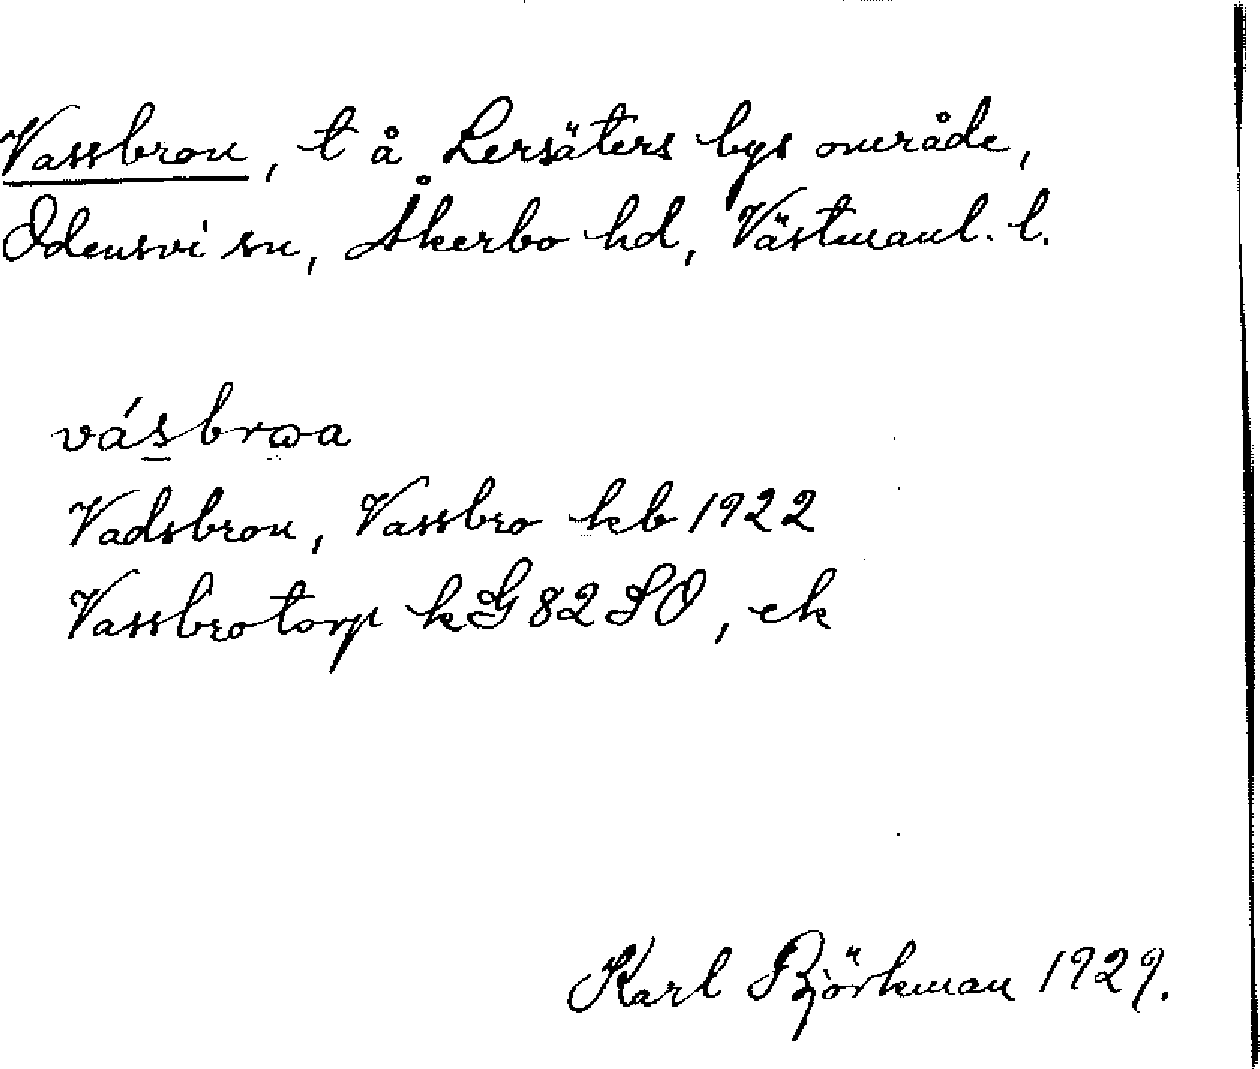 Vassbron, t å Lersäters bys område,
Odensvi sn, Åkerbo hd, Västmanl. l.
vás̲brωa
Vadsbron, Vassbro kb 1922
Vassbrotorp kG 82 SO, ek
Karl Björkman 1929.